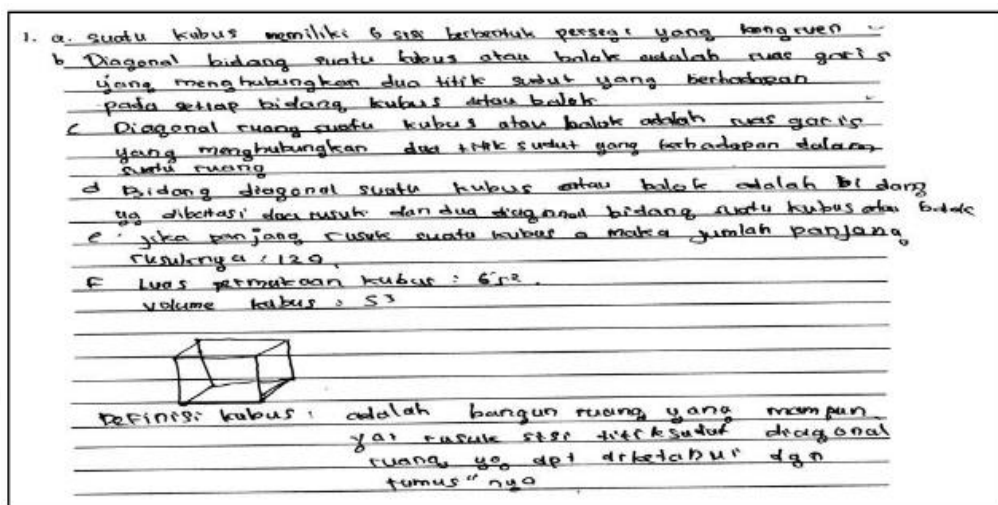 1. a. suatu kubus memiliki 6 sisi berbentuk persegi yang kongruen
b Diagonal bidang suatu kubus atau balok adalah ruas garis
yang menghubungkan dua titik sudut yang berhadapan
pada setiap bidang kubus atau balok
c Diagonal ruang suatu kubus atau balok adalah ruas garis
yang menghubungkan dua titik sudut yang berhadapan dalam
suatu ruang
d Bidang diagonal suatu kubus atau balok adalah bidang
yg dibatasi dua rusuk dan dua diagonal bidang suatu kubus atau balok
e. jika panjang rusuk suatu kubus a maka jumlah panjang
rusuknya : 12a
F Luas permukaan kubus : 6s².
volume kubus : s³
Definisi kubus : adalah bangun ruang yang mempun
yai rusuk sisi titik sudut diagonal
ruang yg dpt diketahui dgn
rumus" nya